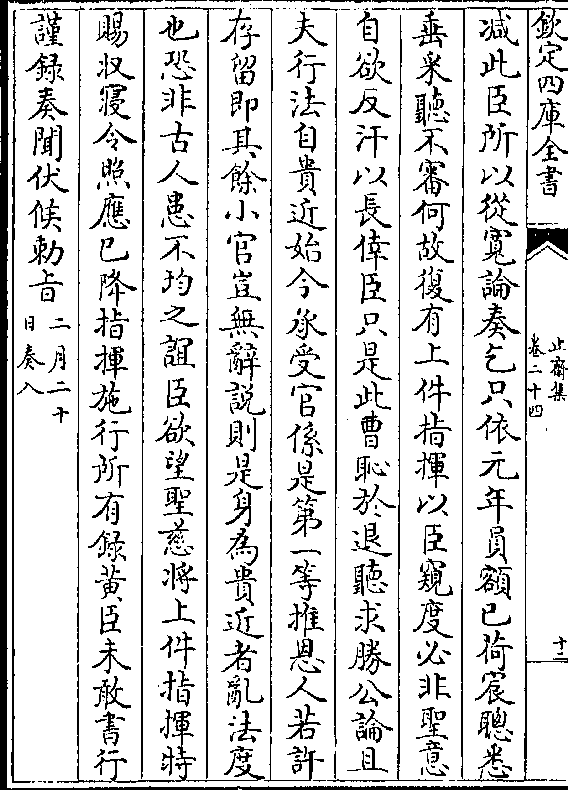 欽定四庫全書
止齋集
卷二十四
十二
減此臣所以從寛論奏乞只依元年員額已荷宸聰悉
垂采聽不審何故復有上件指揮以臣窺度必非聖意
自欲反汗以長倖臣只是此曹恥於退聽求勝公論且
夫行法自貴近始今承受官係是第一等推恩人若許
存留即其餘小官豈無辭說則是身為貴近者亂法度
也恐非古人患不均之誼臣欲望聖慈將上件指揮特
賜收寢令照應已降指揮施行所有錄黄臣未敢書行
謹録奏聞伏候勅㫖二月二十
日奏入